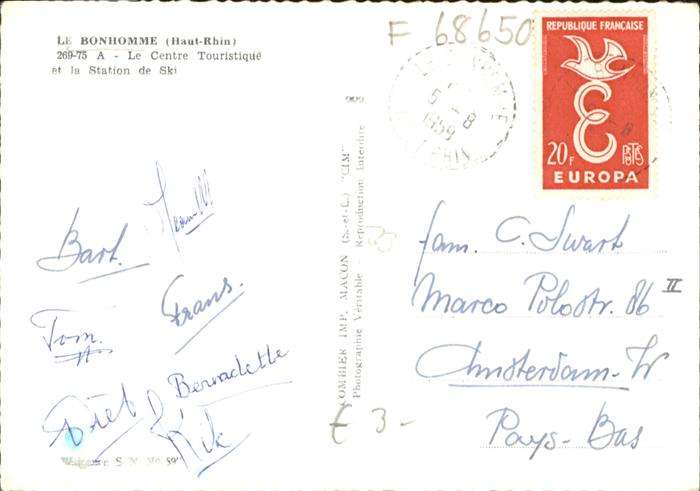 LE BONHOMME (Haut-Rhin)
269-75 A - Le Centre Touristique
et la Station de Ski
F 68650
RÉPUBLIQUE FRANÇAISE
20F
POSTES
EUROPA
5 - 8
1959
RHIN
COMBIER IMP. MACON (S.-et-L.) "CIM"
Photographie Véritable - Reproduction Interdite
Bart.
Tom.
Frans.
Bernadette
Rik
fam. C. Swart
Marco Polostr. 86 II
Amsterdam-W
Pays-Bas
€ 3 -